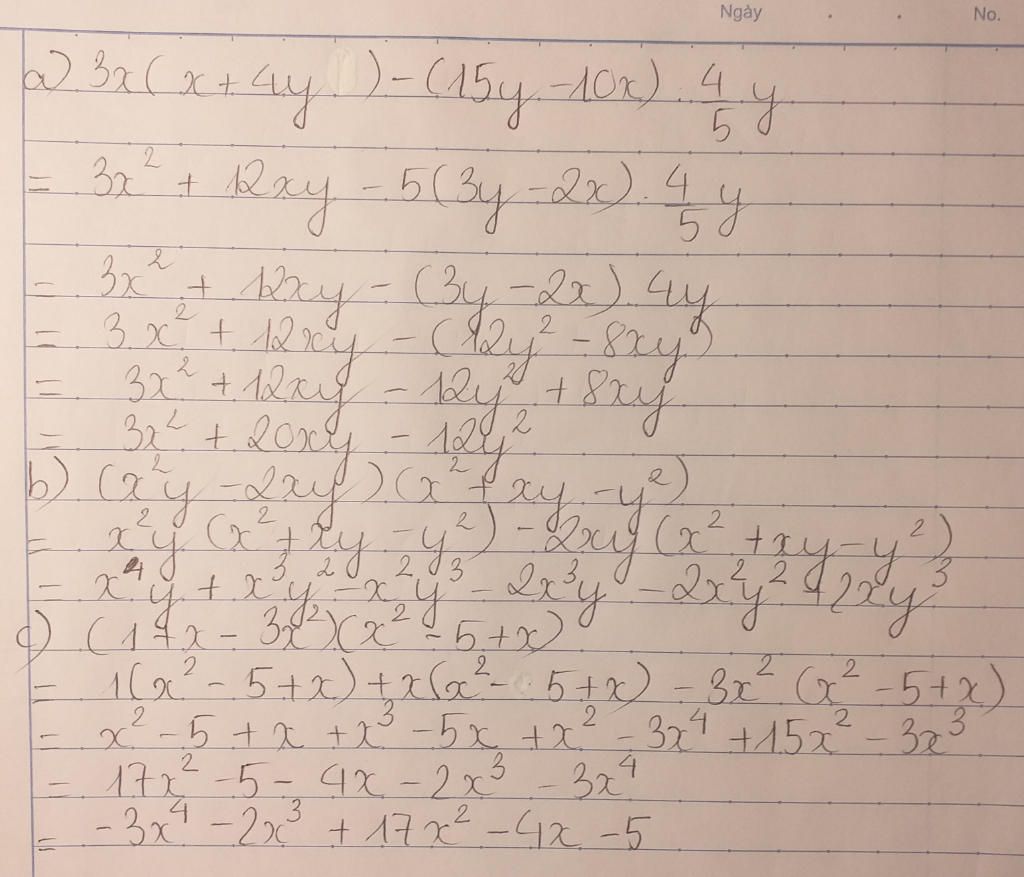 Ngày . . No.
a) 3x(x + 4y ) - (15y - 10x) . 4/5 y
= 3x² + 12xy - 5(3y - 2x) . 4/5 y
= 3x² + 12xy - (3y - 2x) . 4y
= 3x² + 12xy - (12y² - 8xy)
= 3x² + 12xy - 12y² + 8xy
= 3x² + 20xy - 12y²
b) (x²y - 2xy)(x² + xy - y²)
= x²y (x² + xy - y²) - 2xy (x² + xy - y²)
= x⁴y + x³y² - x²y³ - 2x³y - 2x²y² + 2xy³
c) (1+x - 3x²)(x² - 5 + x)
= 1(x² - 5 + x) + x(x² - 5 + x) - 3x² (x² - 5 + x)
= x² - 5 + x + x³ - 5x + x² - 3x⁴ + 15x² - 3x³
= 17x² - 5 - 4x - 2x³ - 3x⁴
= -3x⁴ - 2x³ + 17x² - 4x - 5